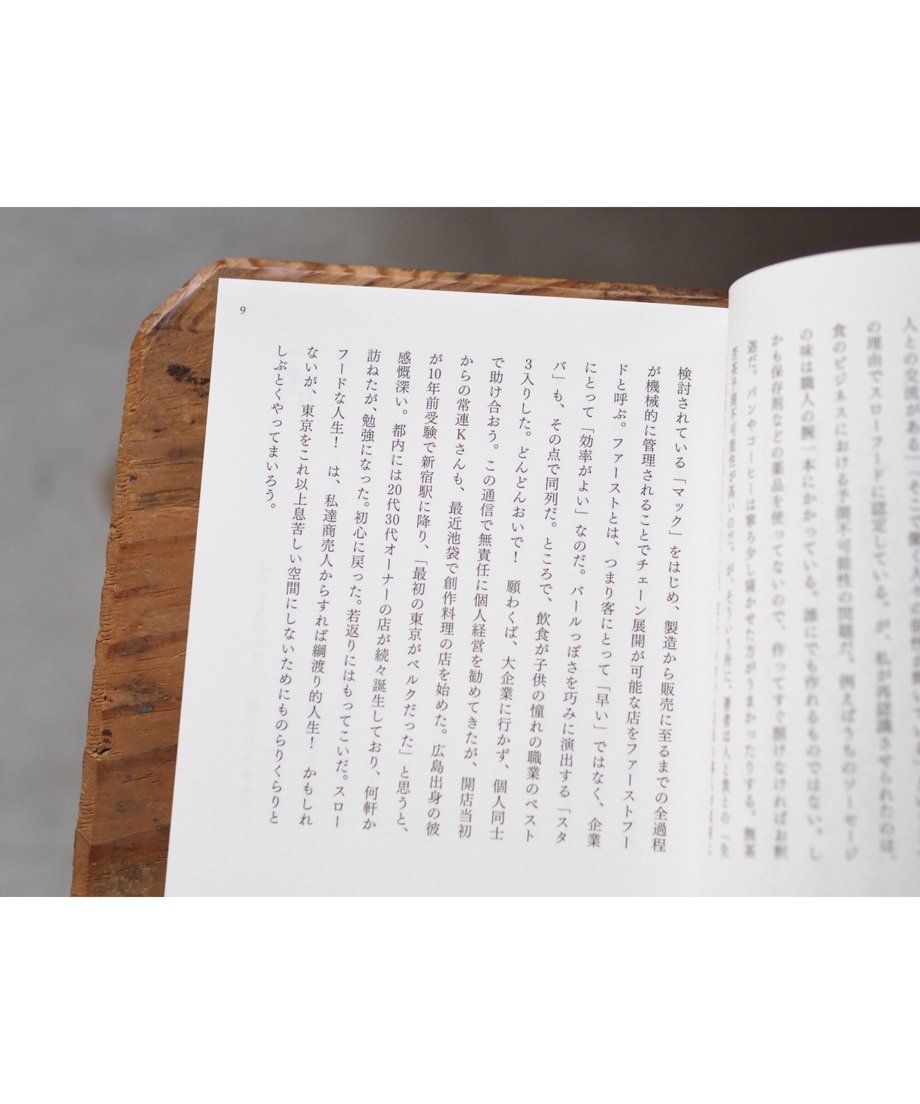 の理由でスローフードに認定している。が、私が再認識させられたのは、
食のビジネスにおける予測不可能性の問題だ。例えばうちのソーセージ
の味は職人の腕一本にかかっている。誰にでも作れるものではない。し
かも保存剤などの薬品を使ってないので、作ってすぐ頂けなければお釈
迦だ。パンやコーヒーは寧ろ少し寝かせた方がうまかったりする。無茶
予測不可能性が高いわけだ。が、そういう所に、著者は人と食との「生
検討されている「マック」をはじめ、製造から販売に至るまでの全過程
が機械的に管理されることでチェーン展開が可能な店をファーストフー
ドと呼ぶ。ファーストとは、つまり客にとって「早い」ではなく、企業
にとって「効率がよい」なのだ。バールっぽさを巧みに演出する「スタ
バ」も、その点で同列だ。ところで、飲食が子供の憧れの職業のベスト
3入りした。どんどんおいで！　願わくば、大企業に行かず、個人同士
で助け合おう。この通信で無責任に個人経営を勧めてきたが、開店当初
からの常連Kさんも、最近池袋で創作料理の店を始めた。広島出身の彼
が10年前受験で新宿駅に降り、「最初の東京がベルクだった」と思うと、
感慨深い。都内には20代30代オーナーの店が続々誕生しており、何軒か
訪ねたが、勉強になった。初心に戻った。若返りにはもってこいだ。スロー
フードな人生！　は、私達商売人からすれば綱渡り的人生！　かもしれ
ないが、東京をこれ以上息苦しい空間にしないためにものらりくらりと
しぶとくやってまいろう。
9